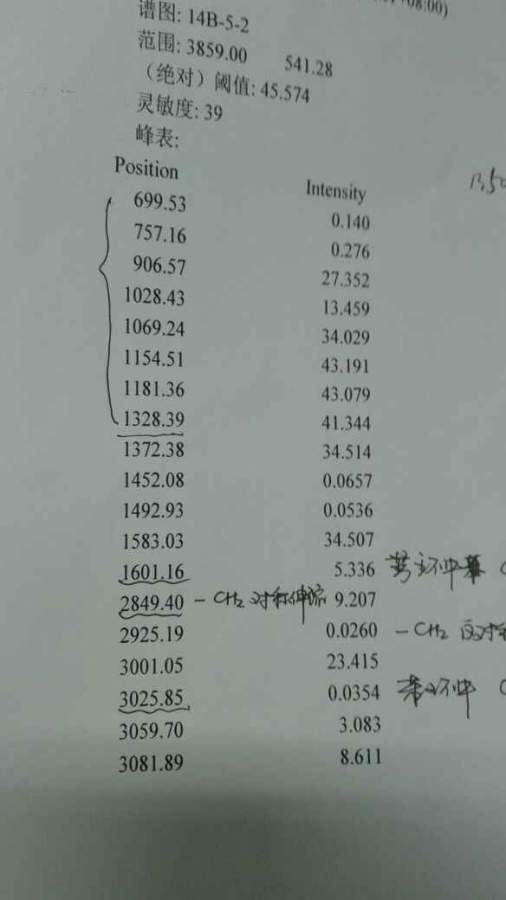 08:00)
谱图: 14B-5-2
范围: 3859.00 541.28
（绝对）阈值: 45.574
灵敏度: 39
峰表:
Position Intensity
699.53 0.140
757.16 0.276
906.57 27.352
1028.43 13.459
1069.24 34.029
1154.51 43.191
1181.36 43.079
1328.39 41.344
1372.38 34.514
1452.08 0.0657
1492.93 0.0536
1583.03 34.507
1601.16 5.336
2849.40 -CH2 对称伸缩 9.207
2925.19 0.0260 -CH2
3001.05 23.415
3025.85 0.0354
3059.70 3.083
3081.89 8.611